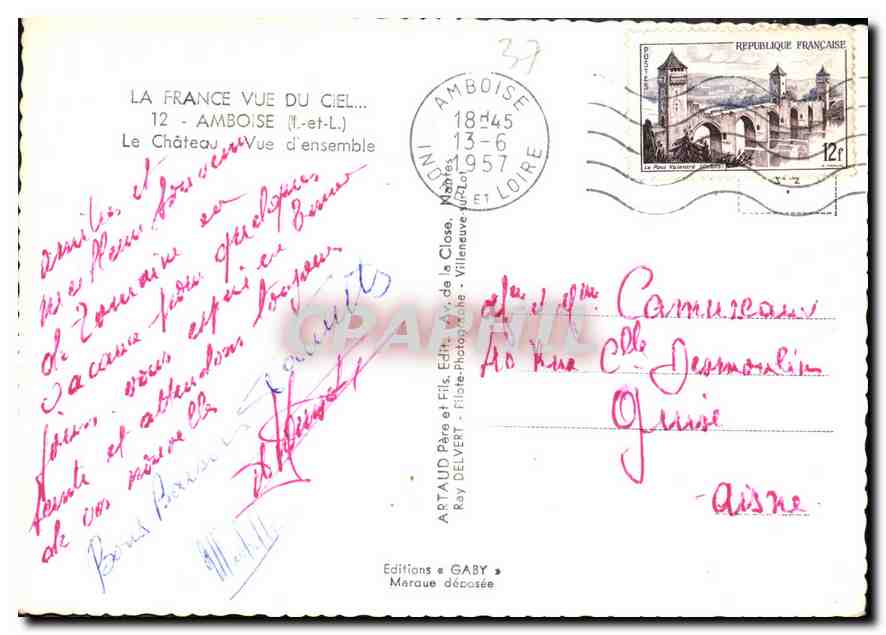 37
LA FRANCE VUE DU CIEL...
12 - AMBOISE (I.-et-L.)
Le Château - Vue d'ensemble
AMBOISE
18H45
13-6
1957
INDRE ET LOIRE
REPUBLIQUE FRANÇAISE
POSTES
12F
Le Pont Valentré
amitiés et
meilleurs souvenirs
de Touraine en
vacances pour quelques
jours vous espérons en bonne
et attendons toujours
de vos nouvelles
Bons Baisers
ARTAUD Père et Fils, Edit., Av. de la Close, Nantes
Ray DELVERT - Pilote-Photographe - Villeneuve-sur-Lot
Mr et Mme Camuzeaux
40 Rue Clle Desmoulin
Guise
Aisne
CPARFIL
Editions « GABY »
Marque déposée